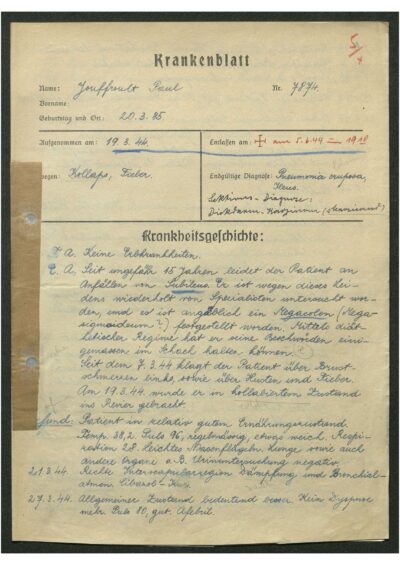 5/4
Krankenblatt
Name: Jouffroult Paul Nr. 7874.
Vorname:
Geburtstag und Ort: 20.3.85
Aufgenommen am: 19.3.44. Entlassen am: am 5.4.44 19 10
wegen: Kollaps, Fieber. Endgültige Diagnose: Pneumonia cruposa,
Ileus.
Sektions-Diagnose:
Dickdarm-Karzinom
Krankheitsgeschichte:
F. A. Keine Erbkrankheiten.
E. A. Seit ungefähr 15 Jahren leidet der Patient an
Anfällen von Subileus. Er ist wegen dieses Lei-
dens wiederholt von Spezialisten untersucht wor-
den, und es ist angeblich ein Megacolon (Mega-
sigmoideum?) festgestellt worden. Mittels diät-
hetischer Regime hat er seine Beschwerden eini-
germassen im Schach halten können.
Seit dem 7.3.44 klagt der Patient über Brust-
schmerzen links, sowie über Husten und Fieber.
Am 19.3.44 wurde er in kollabiertem Zustand
ins Revier gebracht.
fund: Patient in relativ gutem Ernährungszustand.
Temp. 38,2. Puls 96, regelmässig, etwas weich. Respi-
ration 28. Leichtes Nasenflügelb. Lunge sowie auch
andere Organe o.B. Urinuntersuchung negativ.
21.3.44. Rechte Interscapularregion Dämpfung und Bronchial-
atmen. Cibazol-Kur.
27.3.44. Allgemeiner Zustand bedeutend besser. Kein Dyspnoe
mehr. Puls 80, gut. Afebril.